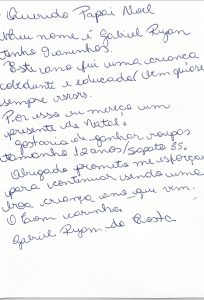 Querido Papai Noel
Meu nome é Gabriel Ryam
tenho 9 aninhos.
Este ano fui uma criança
obediente e educado/bem quiose
sempre rsrsrs.
Por isso eu mereço um
presente de Natal.
Gostaria de ganhar roupas
tamanho 12 anos/sapato 35.
Obrigado prometo me esforçar
para continuar sendo uma
boa criança ano que vem.
O bom carinho.
Gabriel Ryam da Costa